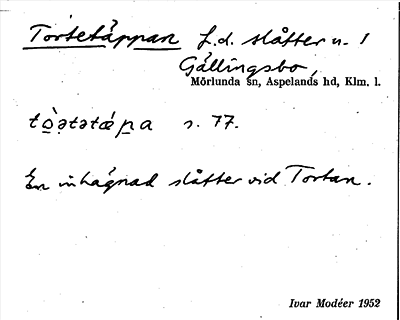 Tortetäppan f.d. slåtter u. 1
Gällingsbo,
Mörlunda sn, Aspelands hd, Klm. l.
s. 77.
En inhägnad slåtter vid Tortan.
Ivar Modéer 1952